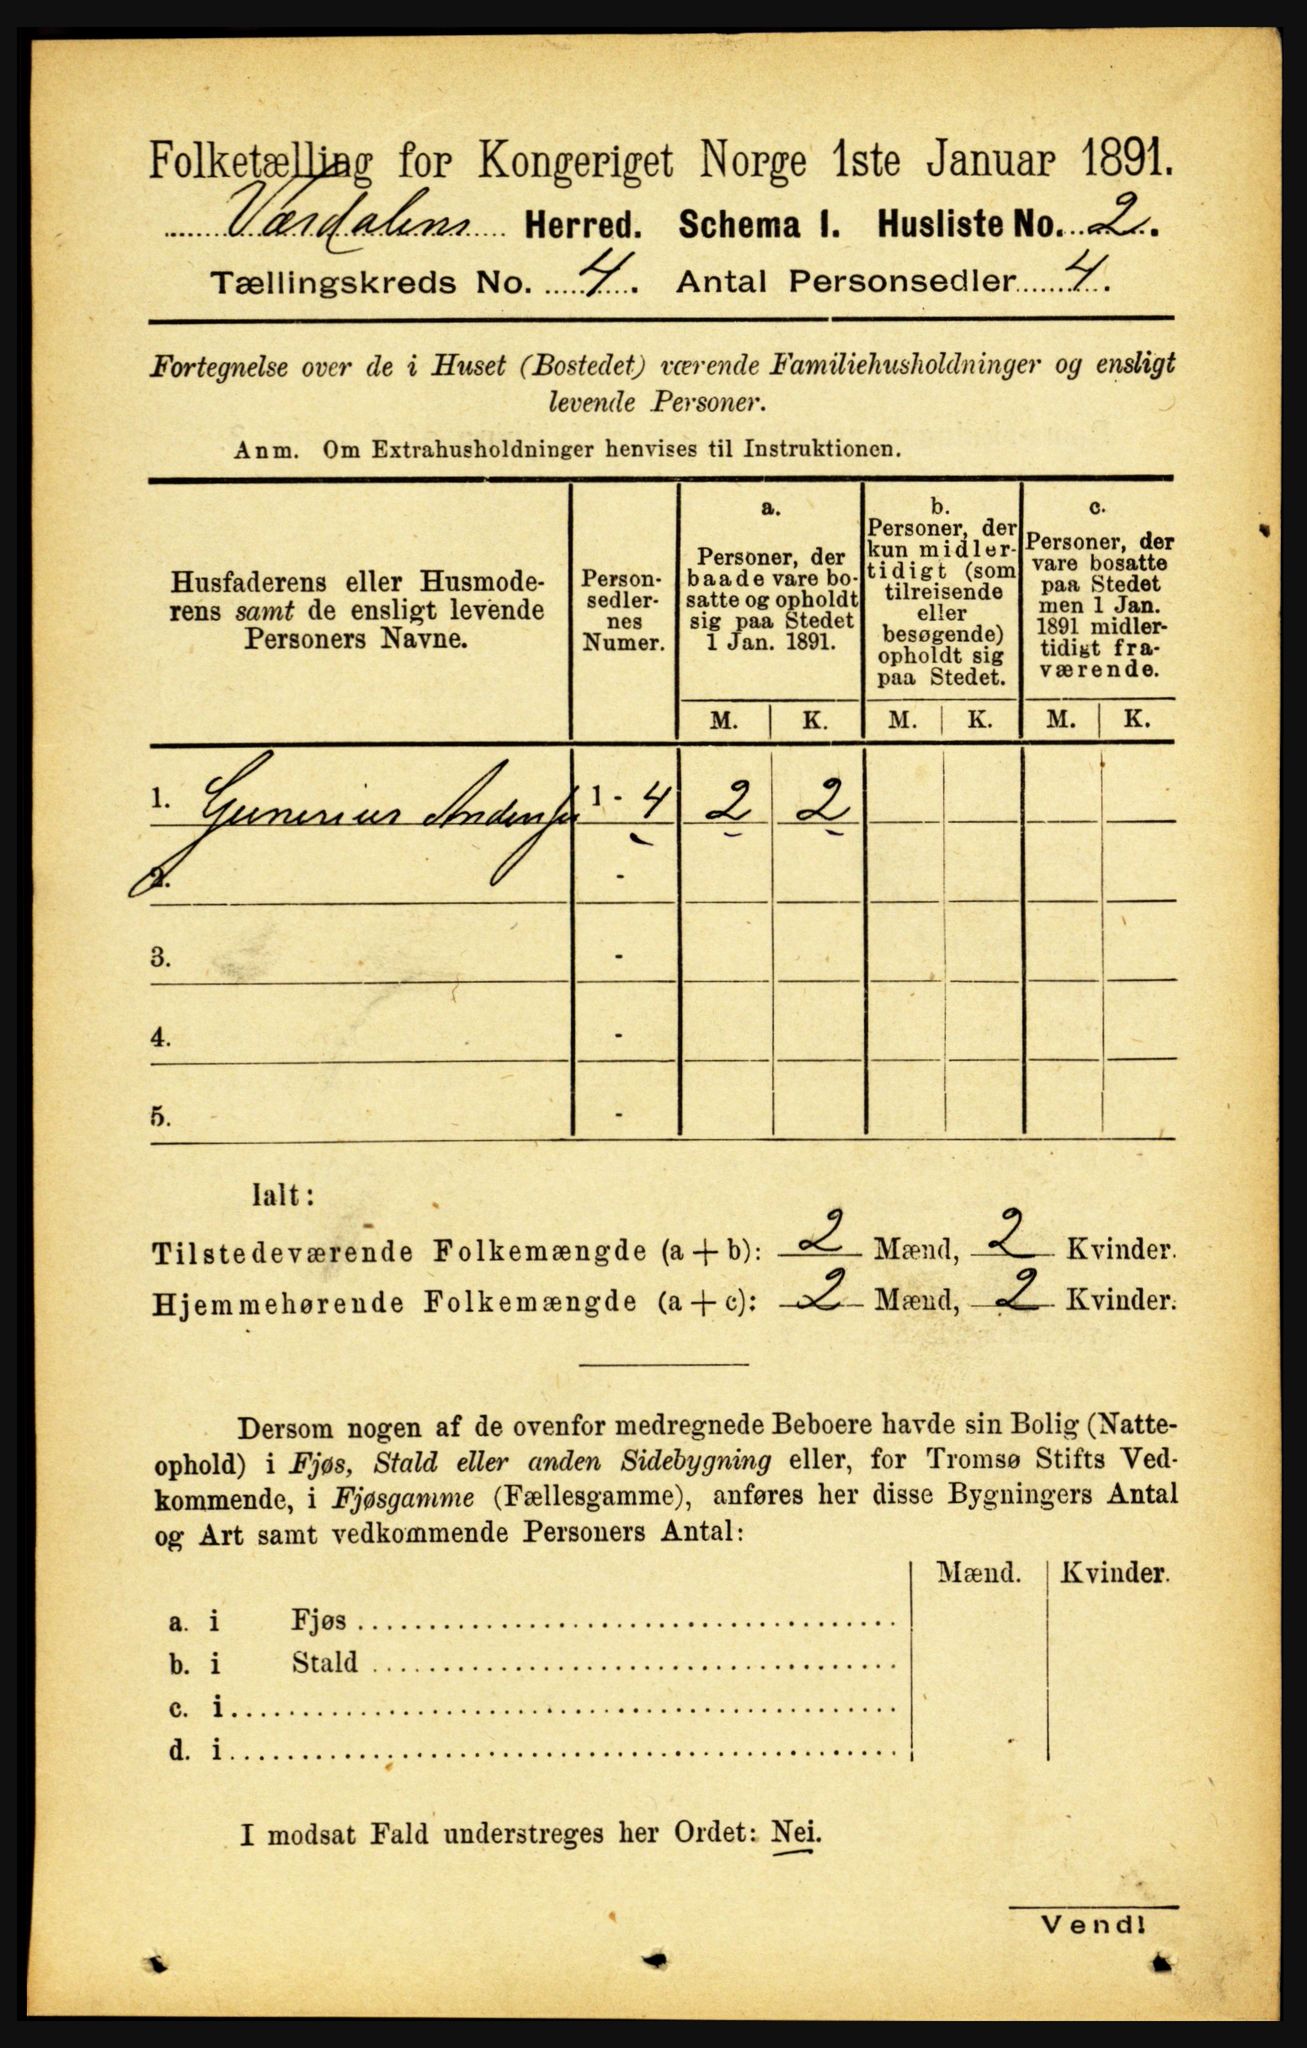 Folketælling for Kongeriget Norge 1ste Januar 1891.
Værdalens Herred. Schema I. Husliste No. 2.
Tællingskreds No. 4. Antal Personsedler 4.
Fortegnelse over de i Huset (Bostedet) værende Familiehusholdninger og ensligt
levende Personer.
Anm. Om Extrahusholdninger henvises til Instruktionen.
Husfaderens eller Husmode-
rens samt de ensligt levende
Personers Navne.
Person-
sedler-
nes
Numer.
a.
Personer, der
baade vare bo-
satte og opholdt
sig paa Stedet
1 Jan. 1891.
b.
Personer, der
kun midler-
tidigt (som
tilreisende
eller
besøgende)
opholdt sig
paa Stedet.
c.
Personer, der
vare bosatte
paa Stedet
men 1 Jan.
1891 midler-
tidigt fra-
værende.
M. K. M. K. M. K.
1. Gunerius Andersen 1 - 4 2 2
2. -
3. -
4. -
5. -
Ialt:
Tilstedeværende Folkemængde (a + b): 2 Mænd, 2 Kvinder.
Hjemmehørende Folkemængde (a + c): 2 Mænd, 2 Kvinder.
Dersom nogen af de ovenfor medregnede Beboere havde sin Bolig (Natte-
ophold) i Fjøs, Stald eller anden Sidebygning eller, for Tromsø Stifts Ved-
kommende, i Fjøsgamme (Fællesgamme), anføres her disse Bygningers Antal
og Art samt vedkommende Personers Antal:
Mænd. Kvinder.
a. i Fjøs
b. i Stald
c. i
d. i
I modsat Fald understreges her Ordet: Nei.
Vend!